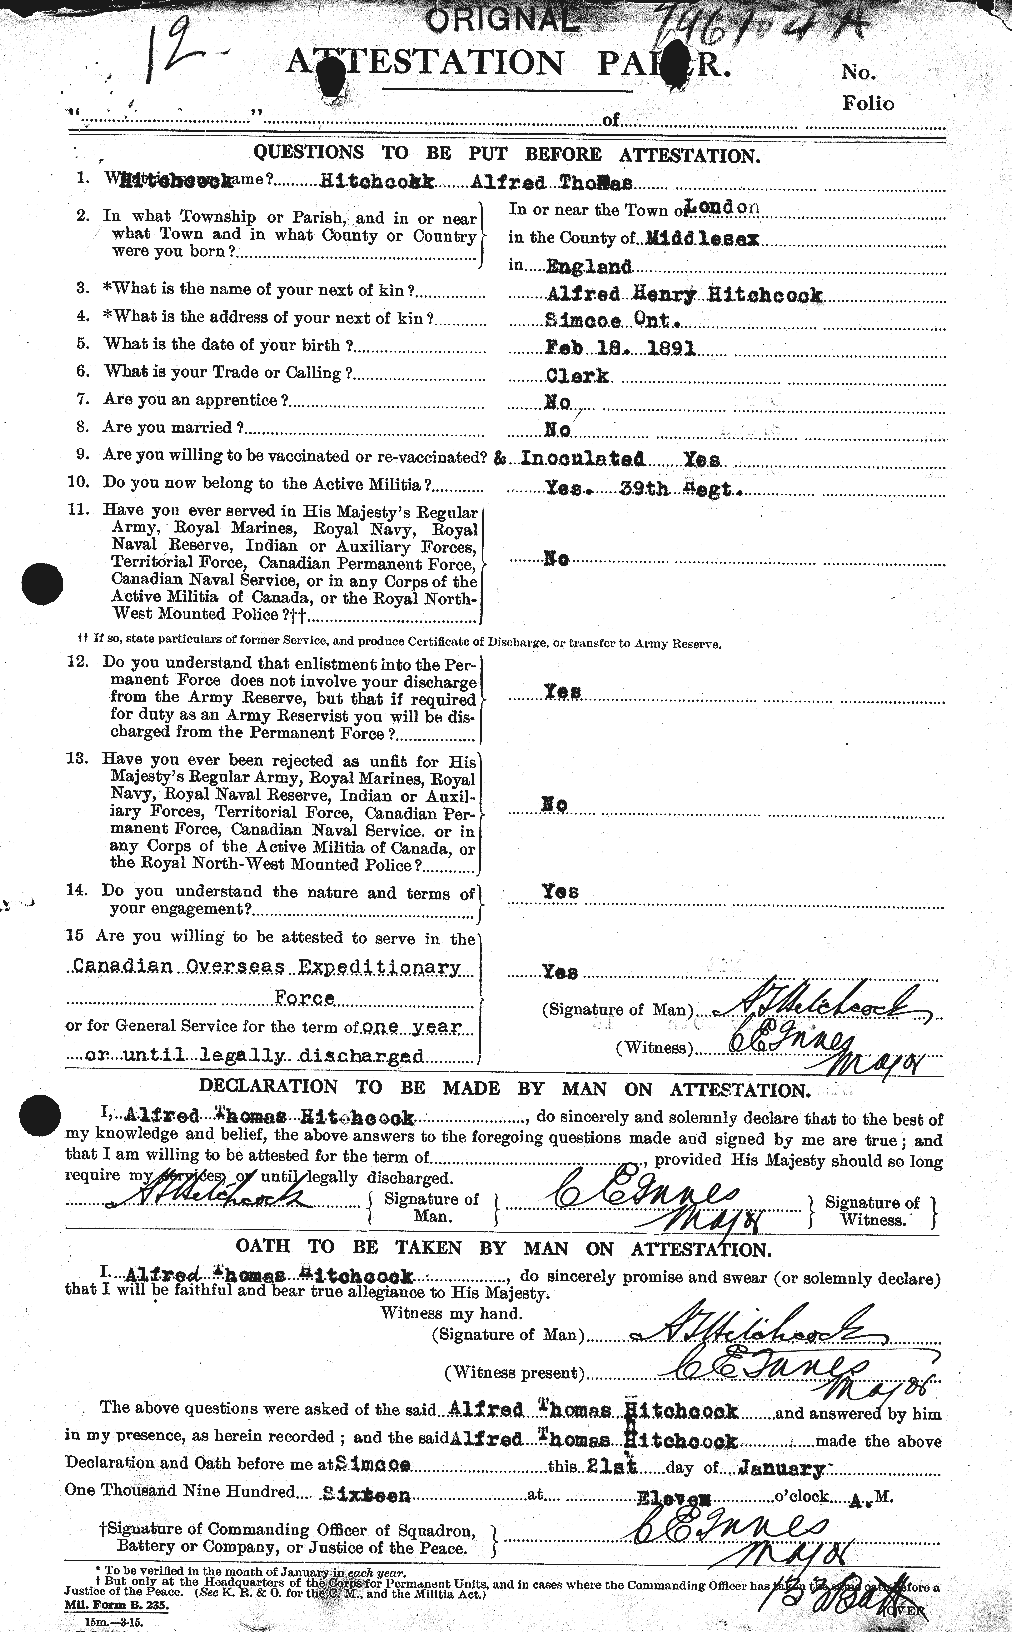 ORIGNAL
12
ATTESTATION PAPER.
No.
Folio
"..............................".................................................................of................................
QUESTIONS TO BE PUT BEFORE ATTESTATION.
1. What is your name?.......... Hitchcock Alfred Thomas
2. In what Township or Parish, and in or near what Town and in what County or Country were you born?
In or near the Town of London
in the County of Middlesex
in England
3. *What is the name of your next of kin? Alfred Henry Hitchcock
4. *What is the address of your next of kin? Simcoe Ont.
5. What is the date of your birth? Feb 18. 1891
6. What is your Trade or Calling? Clerk
7. Are you an apprentice? No
8. Are you married? No
9. Are you willing to be vaccinated or re-vaccinated? & Inoculated Yes
10. Do you now belong to the Active Militia? Yes. 39th Regt.
11. Have you ever served in His Majesty's Regular
Army, Royal Marines, Royal Navy, Royal
Naval Reserve, Indian or Auxiliary Forces,
Territorial Force, Canadian Permanent Force,
Canadian Naval Service, or in any Corps of the
Active Militia of Canada, or the Royal North-
West Mounted Police?††
No
†† If so, state particulars of former Service, and produce Certificate of Discharge, or transfer to Army Reserve.
12. Do you understand that enlistment into the Per-
manent Force does not involve your discharge
from the Army Reserve, but that if required
for duty as an Army Reservist you will be dis-
charged from the Permanent Force?
Yes
13. Have you ever been rejected as unfit for His
Majesty's Regular Army, Royal Marines, Royal
Navy, Royal Naval Reserve, Indian or Auxil-
iary Forces, Territorial Force, Canadian Per-
manent Force, Canadian Naval Service. or in
any Corps of the Active Militia of Canada, or
the Royal North-West Mounted Police?
No
14. Do you understand the nature and terms of
your engagement?
Yes
15 Are you willing to be attested to serve in the
Canadian Overseas Expeditionary
Force
or for General Service for the term of one year
or until legally discharged
Yes
(Signature of Man) A T Hitchcock
(Witness) C E Innes
Major
DECLARATION TO BE MADE BY MAN ON ATTESTATION.
I, Alfred Thomas Hitchcock, do sincerely and solemnly declare that to the best of
my knowledge and belief, the above answers to the foregoing questions made and signed by me are true; and
that I am willing to be attested for the term of, provided His Majesty should so long
require my services, or until legally discharged.
A T Hitchcock { Signature of Man. } C E Innes Major } Signature of Witness. }
OATH TO BE TAKEN BY MAN ON ATTESTATION.
I. Alfred Thomas Hitchcock, do sincerely promise and swear (or solemnly declare)
that I will be faithful and bear true allegiance to His Majesty.
Witness my hand.
(Signature of Man) A T Hitchcock
(Witness present) C E Innes
Major
The above questions were asked of the said Alfred Thomas Hitchcock and answered by him
in my presence, as herein recorded; and the said Alfred Thomas Hitchcock made the above
Declaration and Oath before me at Simcoe this 21st day of January
One Thousand Nine Hundred Sixteen at Eleven o'clock A.M.
†Signature of Commanding Officer of Squadron,
Battery or Company, or Justice of the Peace.
C E Innes
Major
* To be verified in the month of January in each year.
† But only at the Headquarters of the Corps for Permanent Units, and in cases where the Commanding Officer has taken the oath before a
Justice of the Peace. (See K. R. & O. for the C. M., and the Militia Act.)
133 Batt
Mil. Form B. 235.
15m.—3-15.
OVER